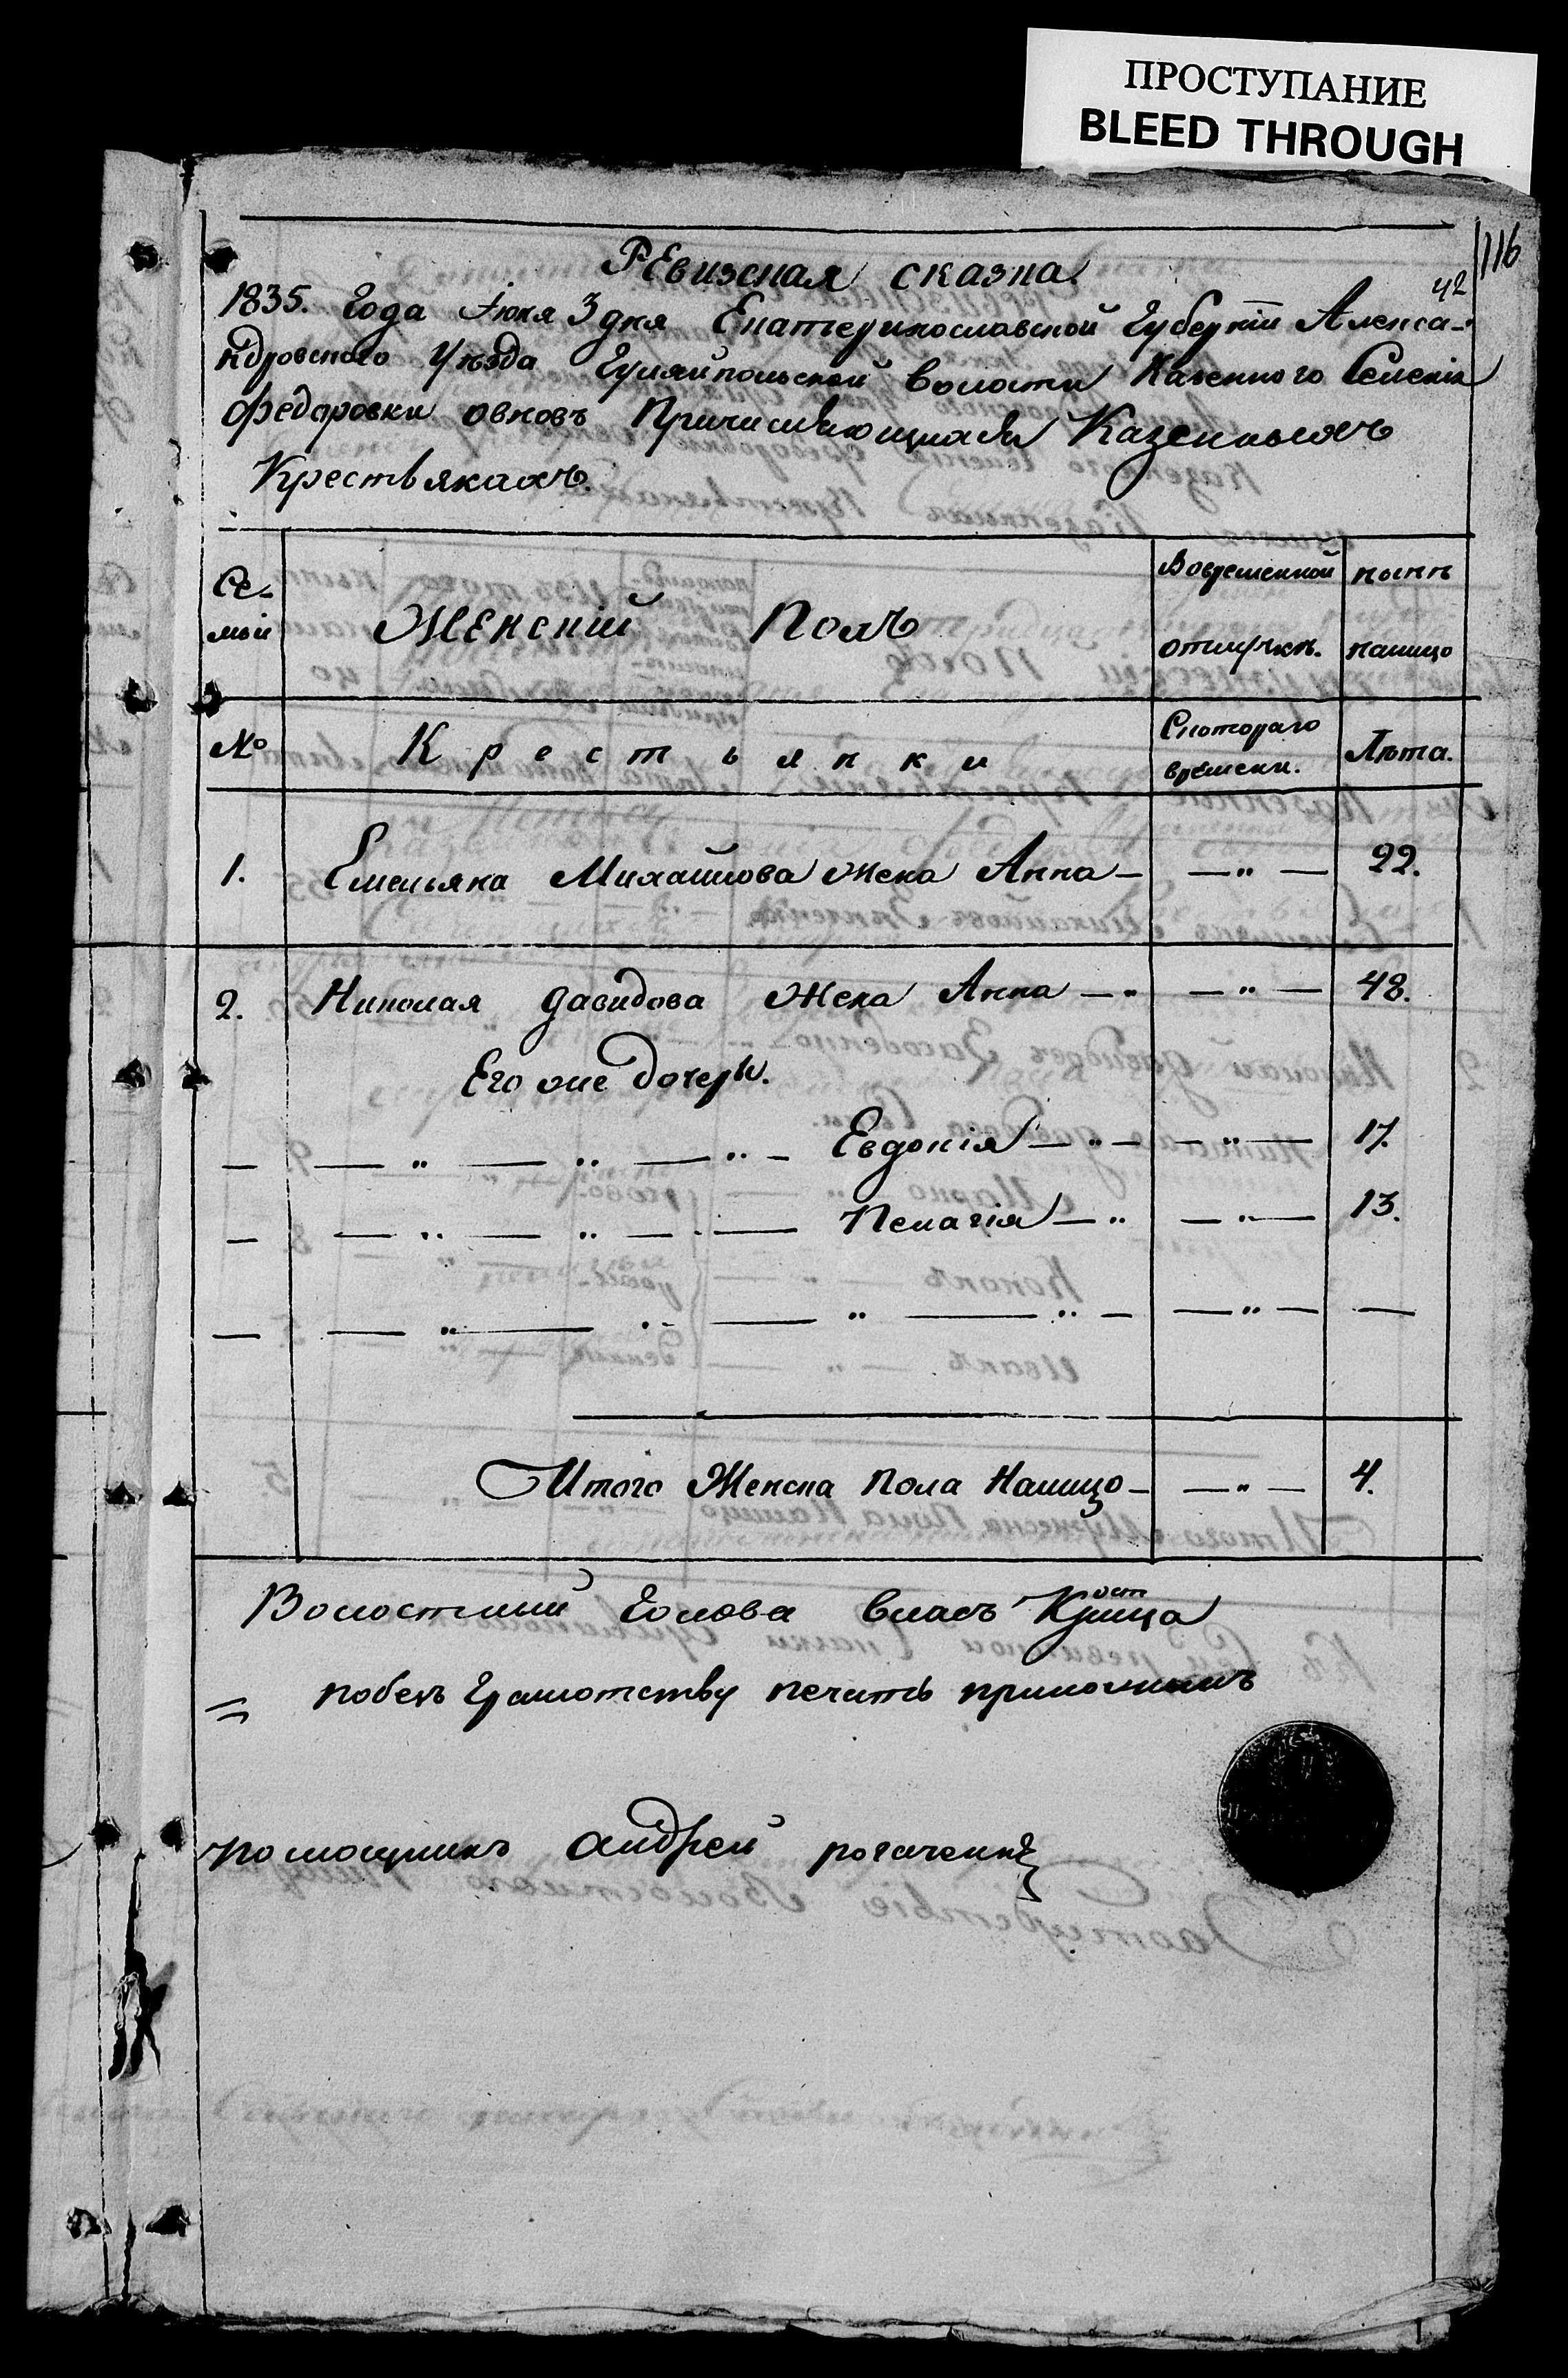 ПРОСТУПАНИЕ
BLEED THROUGH
116
42
Ревизская сказка
1835. Года Июня 3 дня Екатеринославской Губернiи Алекса-
ндровского Уѣзда Гуляйпольской волости Казенного Селенiя
Федоровки овновъ Причисляющихся Казенныхъ
Крестьянахъ.
Се-
мьи
Женскiй Полъ
Вовременной
отлучкѣ.
нынѣ
налицо
№
Крестьянки
Скотораго
времени.
Лѣта.
1. Емельяна Михайлова жена Анна — — " — 22.
2. Николая Давидова жена Анна — " — " — 48.
Его же дочери.
— — " — " — " — Евдокiя — " — — " — 17.
— — " — " — — Пелагiя — " — " — 13.
— — " — " — — " — " — — " — —
Итого Женска пола Налицо — — " — 4.
Волостный Голова Власъ
побезъ Грамотству печать приложилъ
помощникъ андрей рогаченк